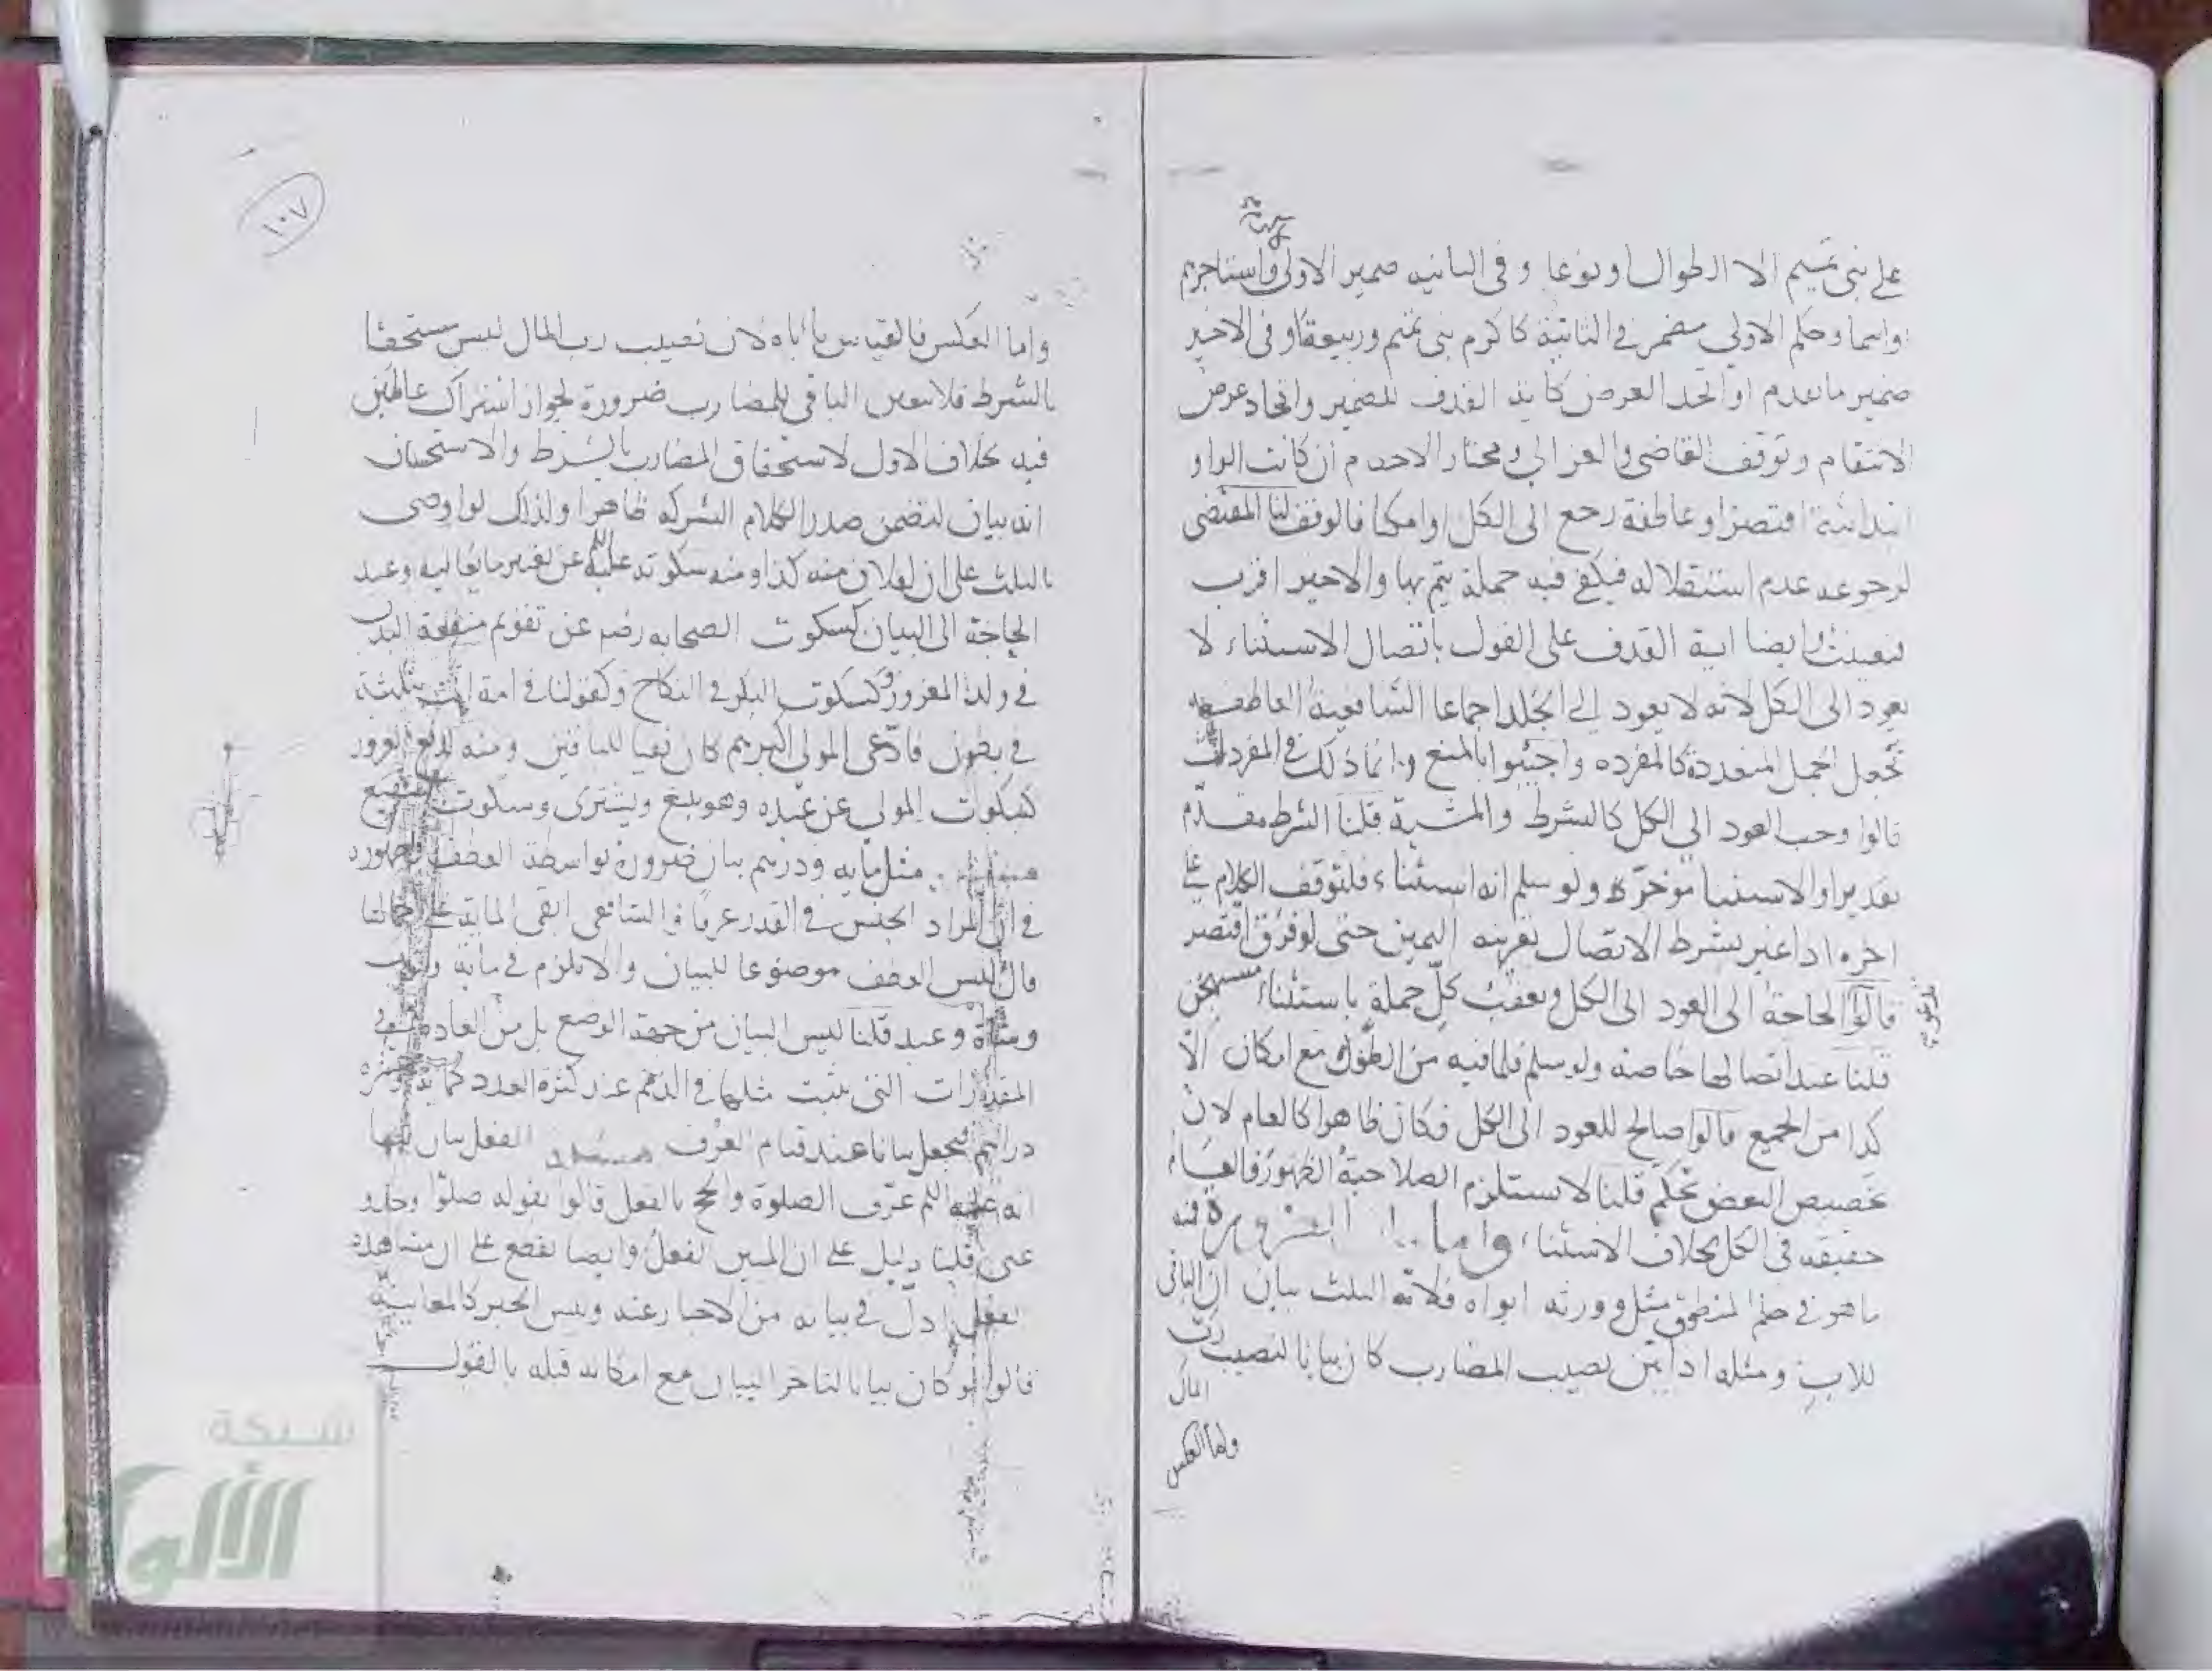 على بنى تميم الا الطوال او نوعا وفى الثانيه ضمير الاولى واستاجرهم
واسما وحكم الاولي مضمر في الثانية كاكرم بنى تميم وربيعة او فى الاخير
ضمير ما تقدم او اتحد الغرض كاية القذف للضمير واتحاد غرض
الانتقام وتوقف القاضى والغزالي ومختار الاحدم ان كانت الواو
ابتدائية اقتصر او عاطفة رجع الى الكل او امكنا فالوقف لنا المقتضى
لرجوعه عدم استقلاله فيكفي فيه جملة يتم بها والاخير اقرب
فتعينت وايضا اية القذف على القول باتصال الاستثناء لا
يعود الى الكل لانه لا يعود الى الجلد اجماعا الشافعية العاطف
تجعل الجمل المتعددة كالمفرده واجيبوا بالمنع وانما ذلك في المفردات
قالوا وجب العود الي الكل كالشرط والمشية قلنا الشرط مقدّم
تقديرا والاستثنا موخره ولو سلم انه استثناء فلتوقف الكلام على
اخره اذا غير بشرط الاتصال بقرينه اليمين حتى لو فرق اقتصر
قالوا الحاجة الى العود الى الكل وتعقب كلّ جملة باستثناء مستهجن
قلنا عند اتصالها خاصة ولو سلم فلما فيه من الطول مع امكان الّا
كذا من الجميع قالوا صالح للعود الى الكل فكان ظاهرا كالعام لان
تخصيص البعض تحكم قلنا لا تستلزم الصلاحية الظهور فالعام
حقيقه فى الكل بخلاف الاستثناء واما الضرورة فمنه
ما هو في حكم المنطوق مثل وورثه ابواه فلامه الثلث بيان ان الباقى
للاب ومثله اذا بيّن نصيب المضارب كان بيانا لنصيب ربّ
المال
واما العكس
١٠٧
واما العكس فالقياس ياباه لان نصيب رب المال ليس مستحقا
بالشرط فلا يتعين الباقى للمضارب ضرورة لجواز اشتراك عاملين
فيه بخلاف الاول لاستحقاق المضارب بالشرط والاستحسان
انه بيان لتضمن صدر الكلام الشركه ظاهرا ولذلك لو اوصى
بالثلث على ان لفلان منه كذا ومنه سكوته عليه عن تغيير ما يعاينه وعند
الحاجة الى البيان كسكوت الصحابه رضم عن تقويم منفعة البدن
في ولد المغرور وكسكوت البكر في النكاح وكقولنا في امة اتت بثلثة
في بطون فادّعى المولى اكبرهم كان نفيا للباقين ومنه لدفع الغرور
كسكوت المولي عن عبده وهو يبيع ويشترى وسكوت الشفيع
مثل مايه ودرهم بيان ضرورة بواسطة العطف
في ان المراد الجنس في القدر عرفا والشافعى ابقى الماية على حالتها
قال ليس العطف موضوعا للبيان والا يلزم في ماية وثوب
وشاة وعبد قلنا ليس البيان من جهة الوضع بل من العاده في
المقدرات التى يثبت مثلها في الذمم عند كثرة العدد كماية وعشرة
دراهم فجعل بيانا عند قيام العرف الفعل بيان لنا
انه عليه السلم عرّف الصلوة والحج بالفعل قالوا بقوله صلّوا وخذوا
عنى قلنا دليل على ان المبين الفعل وايضا نقطع على ان مشاهدة
الفعل ادلّ في بيانه من الاخبار عنه وليس الخبر كالمعاينه
قالوا لو كان بيانا لتاخر البيان مع امكانه قبله بالقول
شبكة
الألوكة